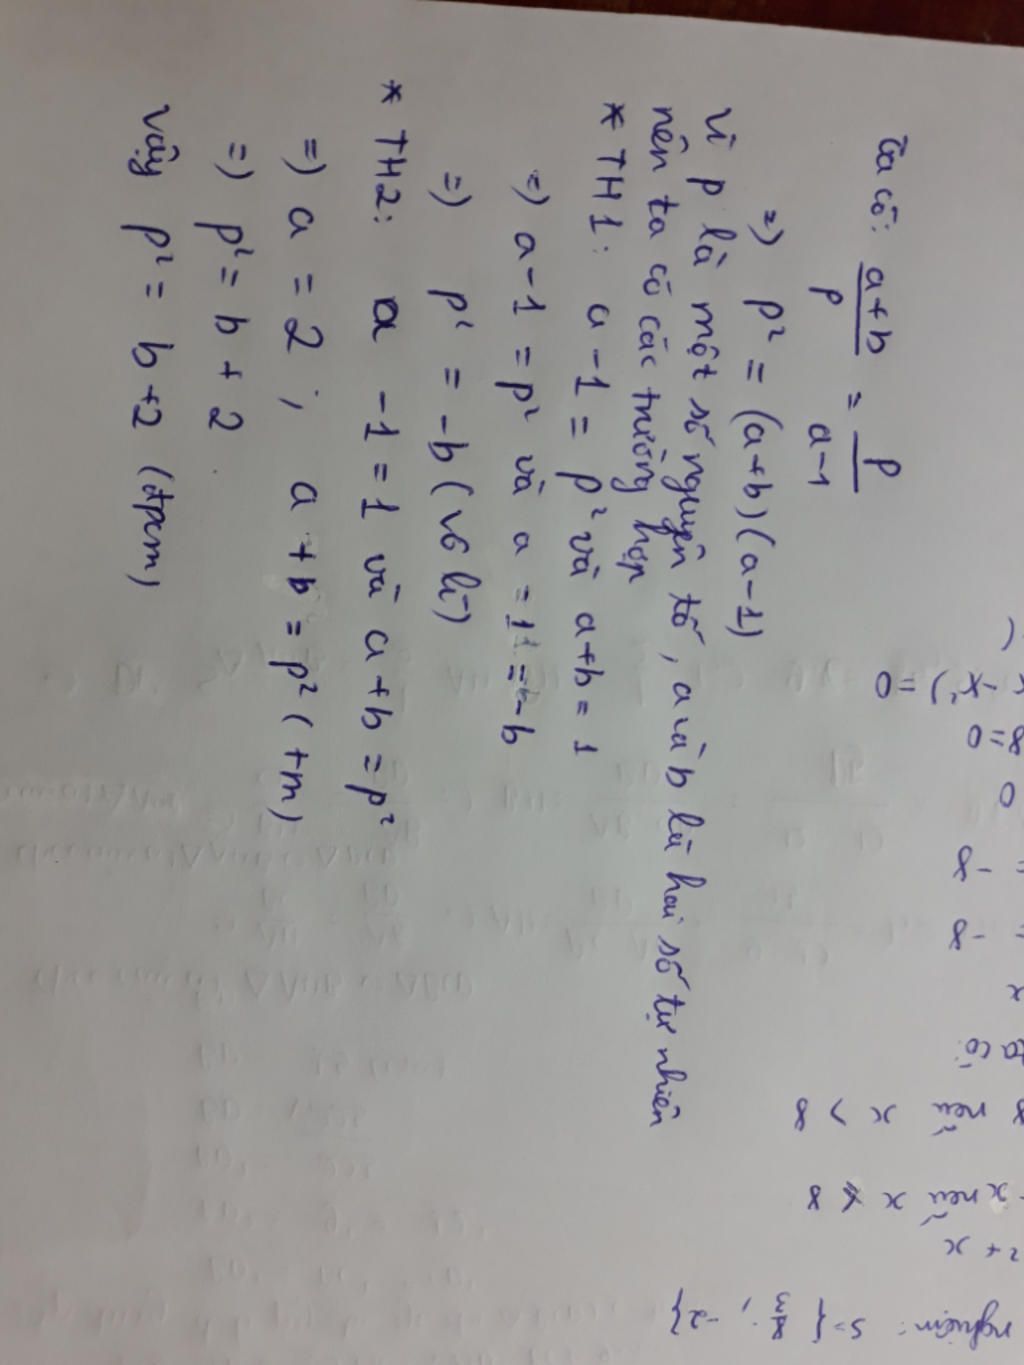 Ta có: a+b/p = p/a-1
=) p² = (a+b)(a-1)
Vì p là một số nguyên tố, a và b là hai số tự nhiên
nên ta có các trường hợp
* TH1: a-1 = p² và a+b = 1
=) a-1 = p² và a = 1-b
=) p² = -b (vô lí)
* TH2: a -1 = 1 và a+b = p²
=) a = 2 ; a+b = p² (tm)
=) p² = b + 2
Vậy p² = b+2 (đpcm)
-x²) = 0
8=0
0
= -8
= -8
x
ta có:
8 nếu x > 8
x nếu x < 8
² + x
nghiệm: S={ 8/3 ; -2}